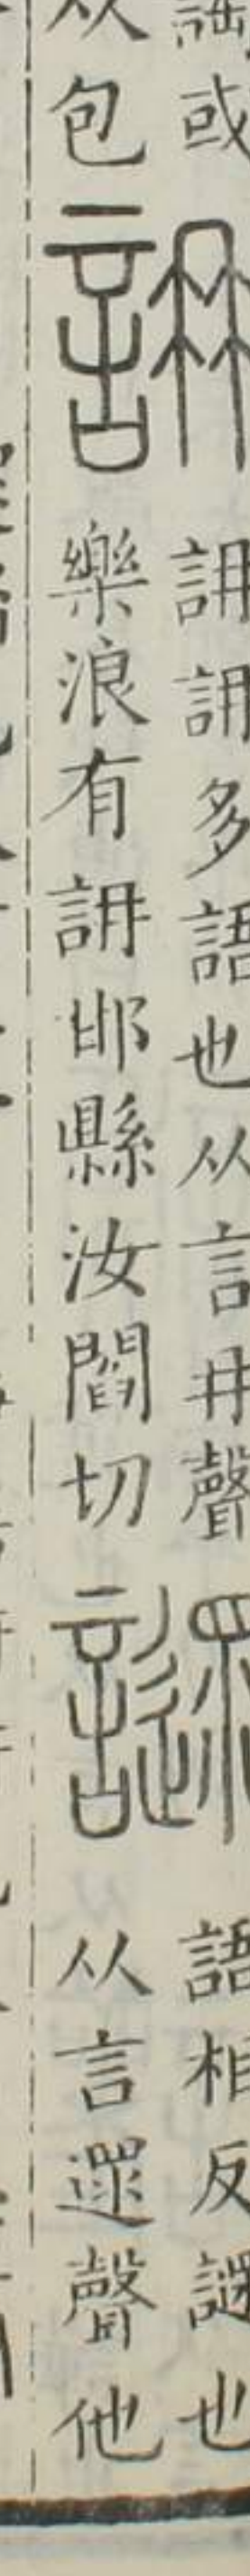 䛬或䛁䛁䛁多語也从言冄聲䜚語相反䜚也
从包樂浪有䛁邯縣汝閻切从言遝聲他